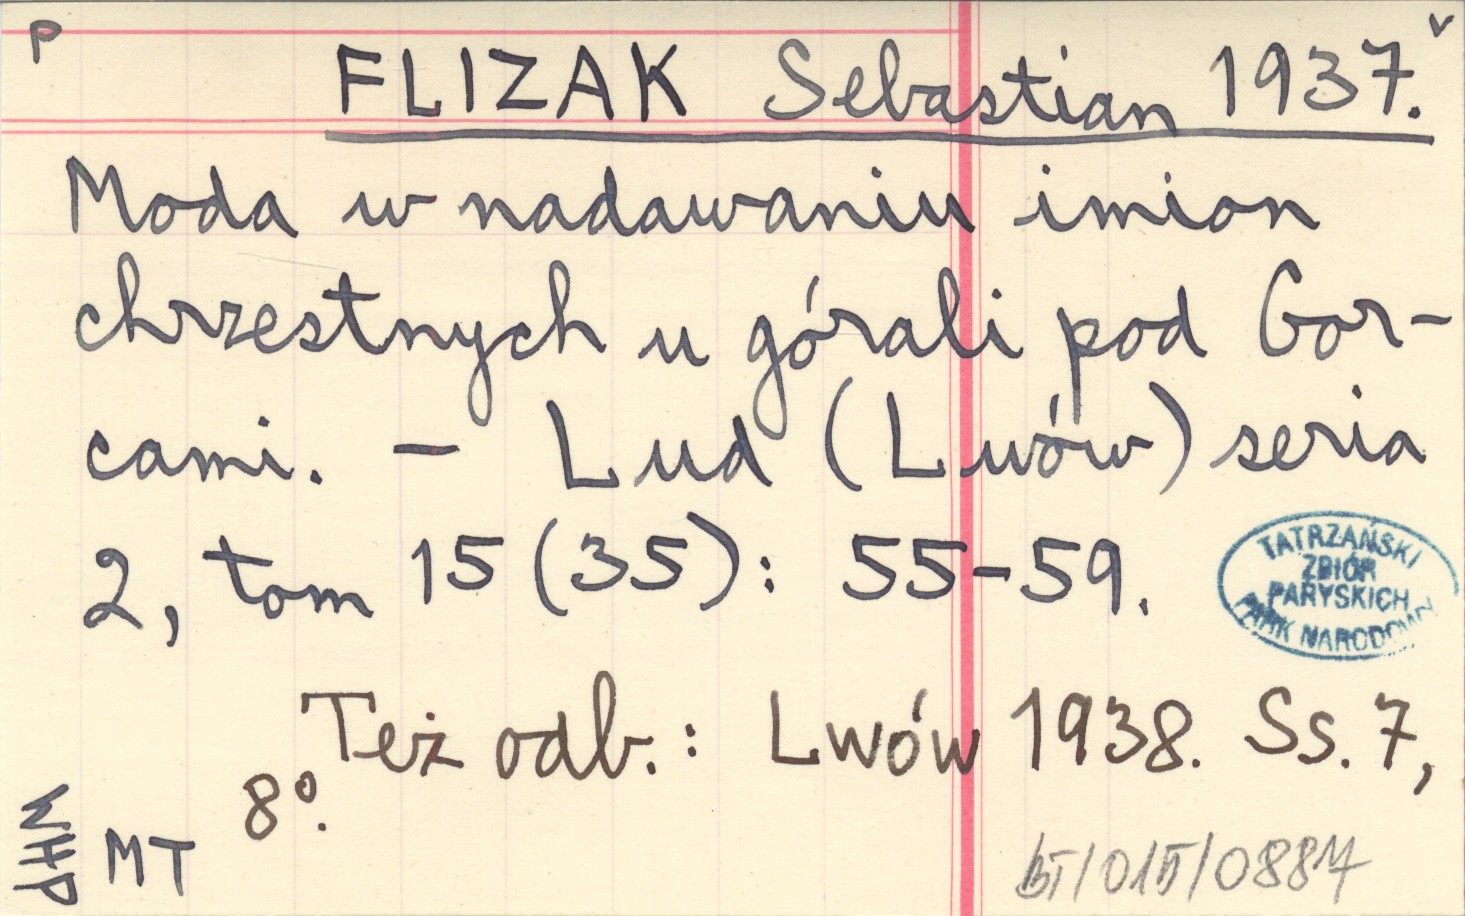 P
v
FLIZAK Sebastian 1937.
Moda w nadawaniu imion
chrzestnych u górali pod Gor-
cami. – Lud (Lwów) seria
2, tom 15 (35): 55–59.
TATRZAŃSKI
ZBIÓR
PARYSKICH
PARK NARODOWY
Też odb.: Lwów 1938. Ss. 7,
8°.
WHP
MT